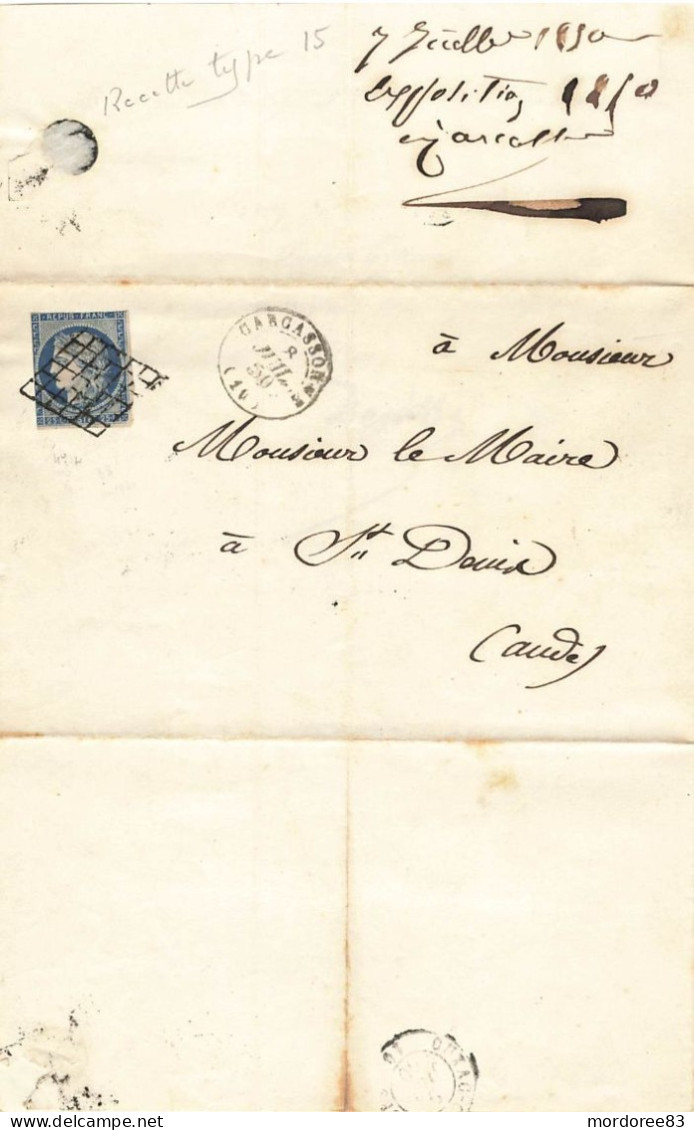 Recette type 15
7 Juillet 1850
Exposition 1850
REPUB FRANC
CARCASSONNE
8
JUIL.
50
(10)
à Monsieur
Monsieur le Maire
à St. Denis
(aude)
mordoree83 | delcampe.net